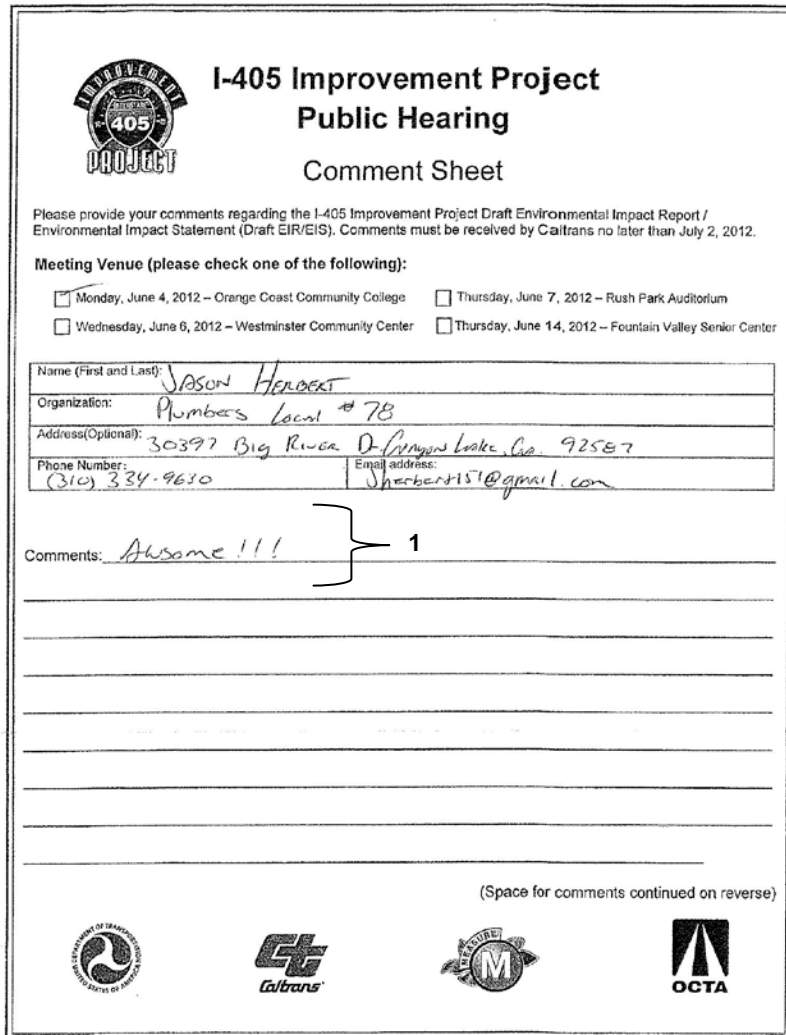 IMPROVEMENT
INTERSTATE
405
PROJECT
I-405 Improvement Project
Public Hearing
Comment Sheet
Please provide your comments regarding the I-405 Improvement Project Draft Environmental Impact Report /
Environmental Impact Statement (Draft EIR/EIS). Comments must be received by Caltrans no later than July 2, 2012.
Meeting Venue (please check one of the following):
Monday, June 4, 2012 – Orange Coast Community College
Thursday, June 7, 2012 – Rush Park Auditorium
Wednesday, June 6, 2012 – Westminster Community Center
Thursday, June 14, 2012 – Fountain Valley Senior Center
Name (First and Last): JASON HERBERT
Organization: Plumbers Local # 78
Address(Optional): 30397 Big River Dr Canyon Lake, Ca. 92587
Phone Number: (310) 334-9630
Email address: Jherbert151@gmail.com
Comments: Awsome!!!
1
(Space for comments continued on reverse)
DEPARTMENT OF TRANSPORTATION
UNITED STATES OF AMERICA
Caltrans
MEASURE
M
OCTA